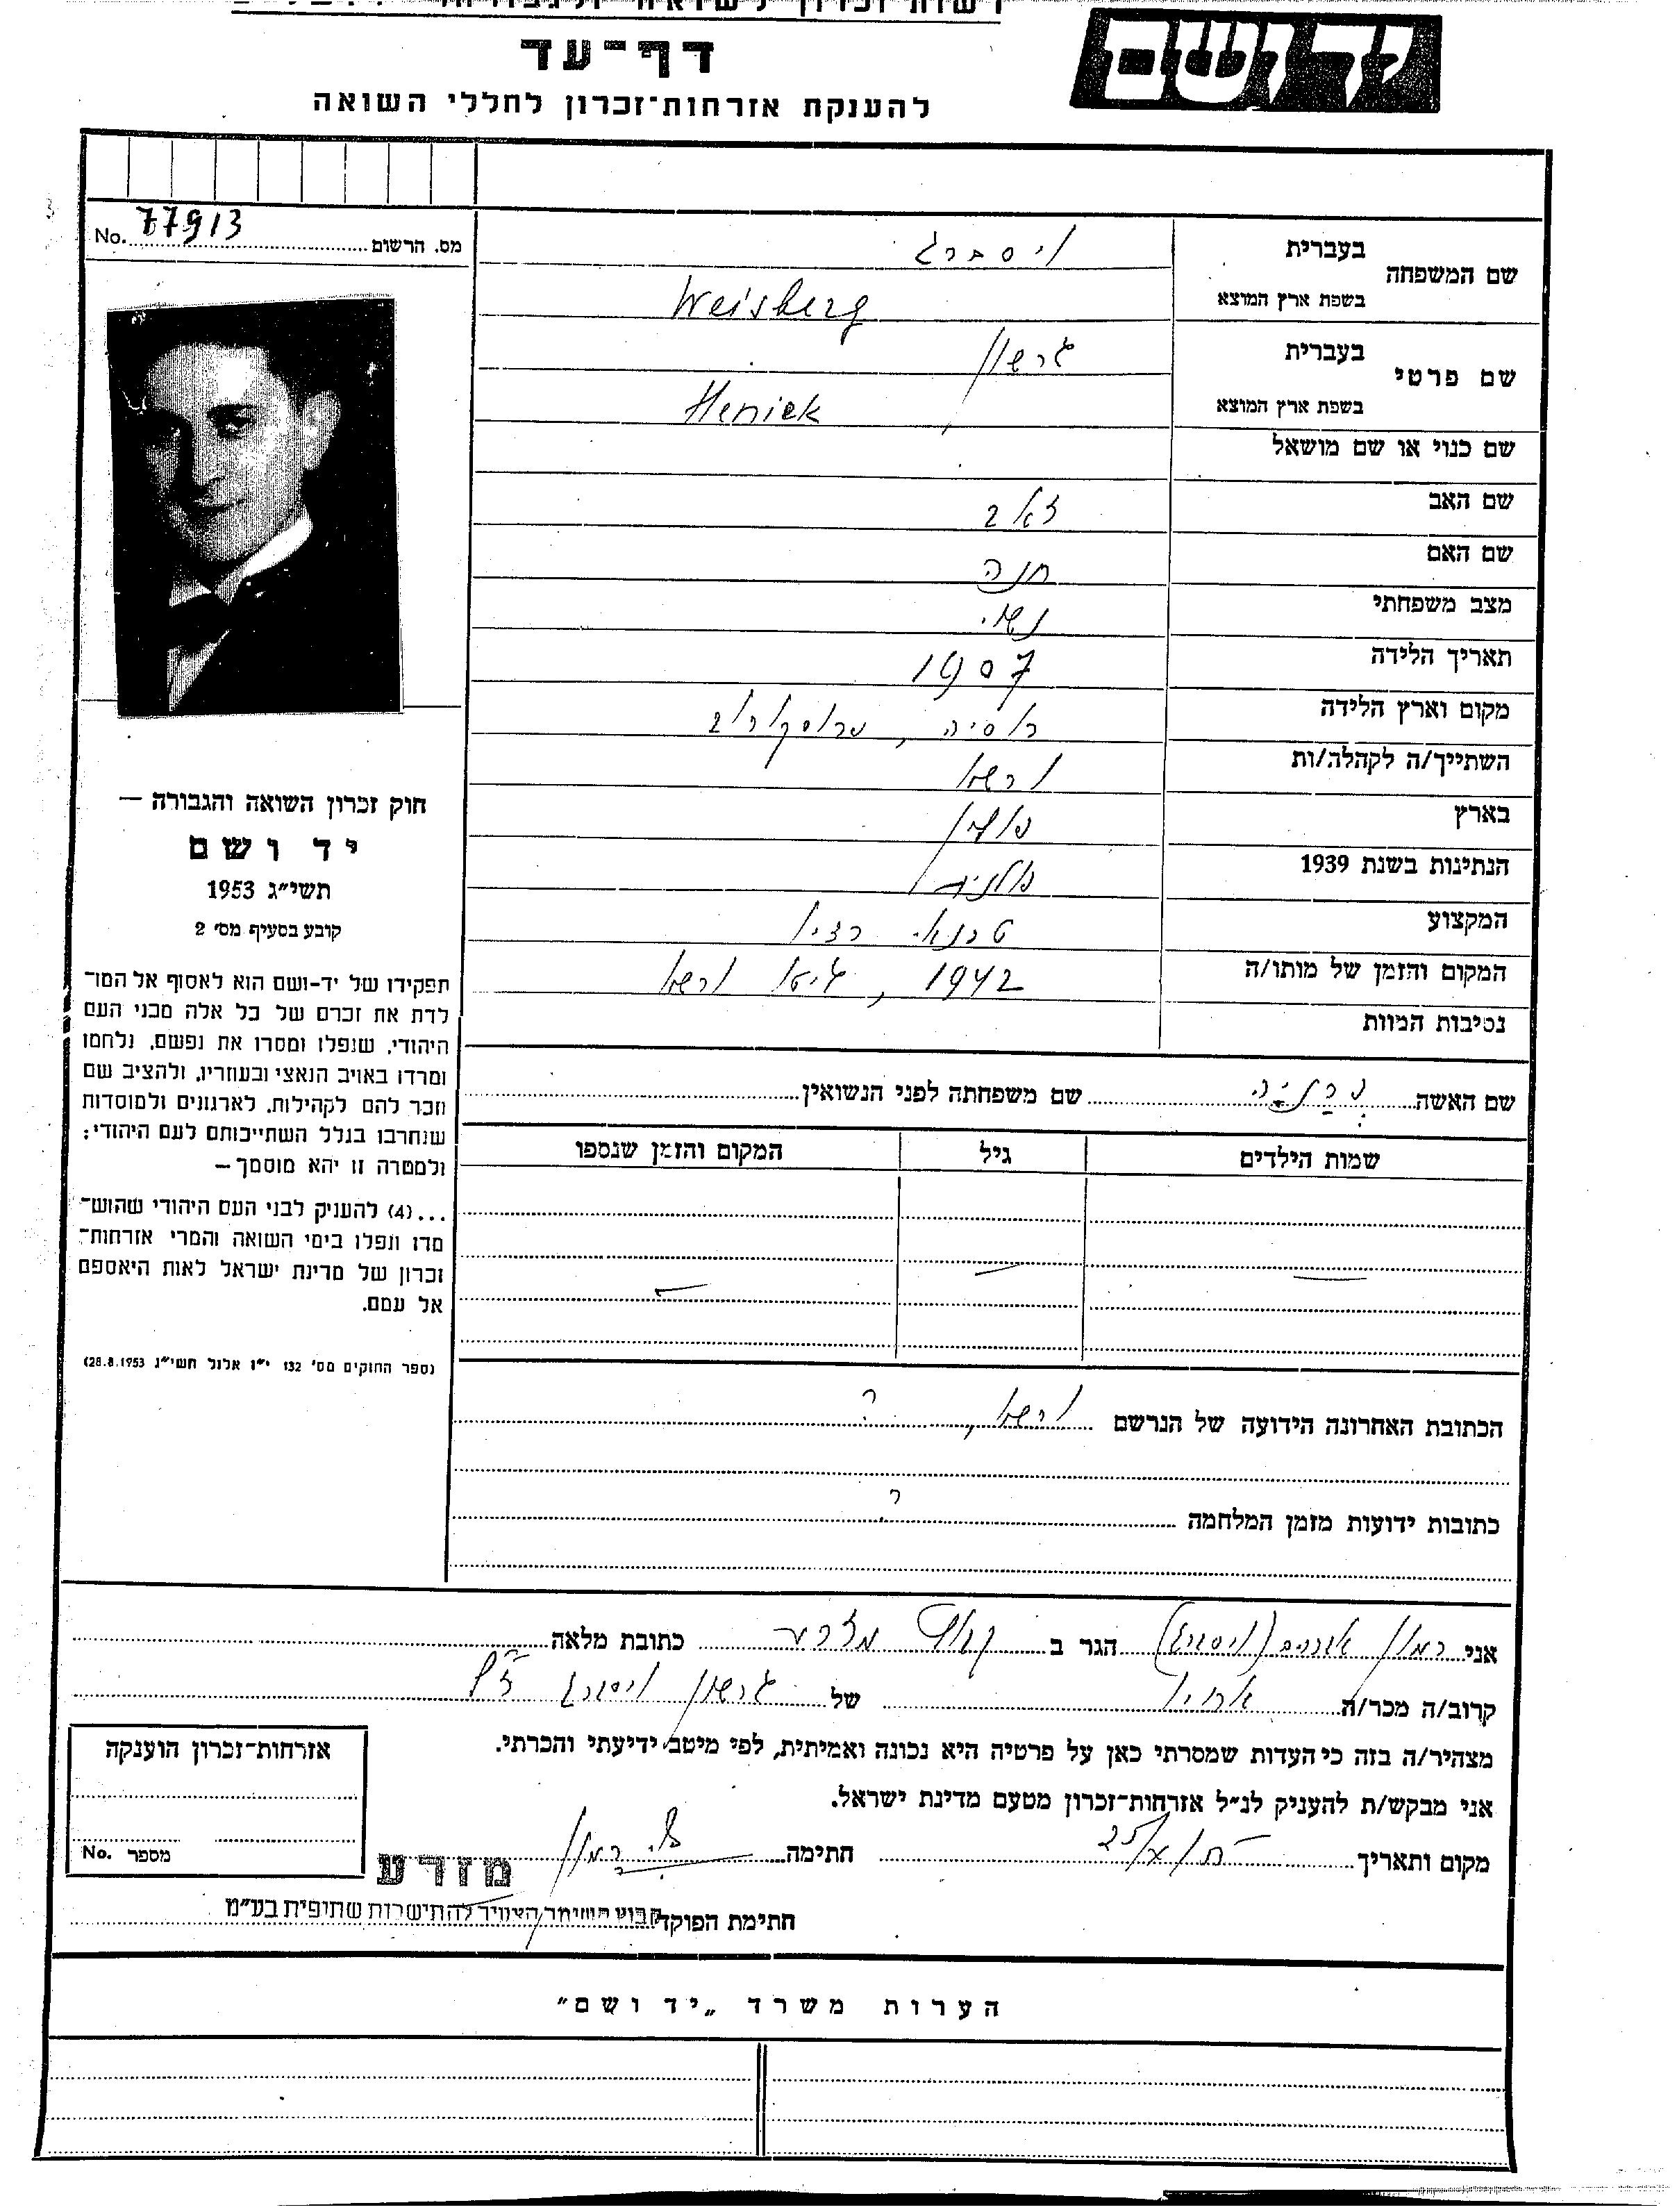 דף־עד
ידושם
להענקת אזרחות־זכרון לחללי השואה
No. 77913 מס. הרשום
שם המשפחה
בעברית ויסברג
בשפת ארץ המוצא Weisberg
שם פרטי
בעברית גרשון
בשפת ארץ המוצא Heniek
שם כנוי או שם מושאל
שם האב זאב
שם האם חנה
מצב משפחתי נשוי
תאריך הלידה 1907
מקום וארץ הלידה רוסיה,
השתייך/ה לקהלה/ות ורשא
בארץ פולין
הנתינות בשנת 1939 פולנית
המקצוע טכנאי רדיו
המקום והזמן של מותו/ה 1942, גיטו ורשא
נסיבות המוות
שם האשה שם משפחתה לפני הנשואין
שמות הילדים גיל המקום והזמן שנספו
חוק זכרון השואה והגבורה —
יד ושם
תשי״ג 1953
קובע בסעיף מס׳ 2
תפקידו של יד-ושם הוא לאסוף אל המו־
לדת את זכרם של כל אלה מבני העם
היהודי, שנפלו ומסרו את נפשם, נלחמו
ומרדו באויב הנאצי ובעוזריו, ולהציב שם
וזכר להם לקהילות, לארגונים ולמוסדות
שנחרבו בגלל השתייכותם לעם היהודי;
ולמטרה זו יהא מוסמך—
...(4) להעניק לבני העם היהודי שהוש־
מדו ונפלו בימי השואה והמרי אזרחות־
זכרון של מדינת ישראל לאות היאספם
אל עמם.
(ספר החוקים מס׳ 132 י״ז אלול תשי״ג 28.8.1953)
הכתובת האחרונה הידועה של הנרשם ורשא, ?
כתובות ידועות מזמן המלחמה ?
אני רמון אברהם (ויסברג) הגר ב קבוץ מזרע כתובת מלאה
קרוב/ה מכר/ה אחיו של גרשון ויסברג ז״ל
מצהיר/ה בזה כי העדות שמסרתי כאן על פרטיה היא נכונה ואמיתית, לפי מיטב ידיעתי והכרתי.
אני מבקש/ת להעניק לנ״ל אזרחות־זכרון מטעם מדינת ישראל.
מקום ותאריך חתימה
מזרע
חתימת הפוקד קבוץ השומר הצעיר להתישבות שתופית בע״מ
אזרחות־זכרון הוענקה
No. מספר
הערות משרד „יד ושם״